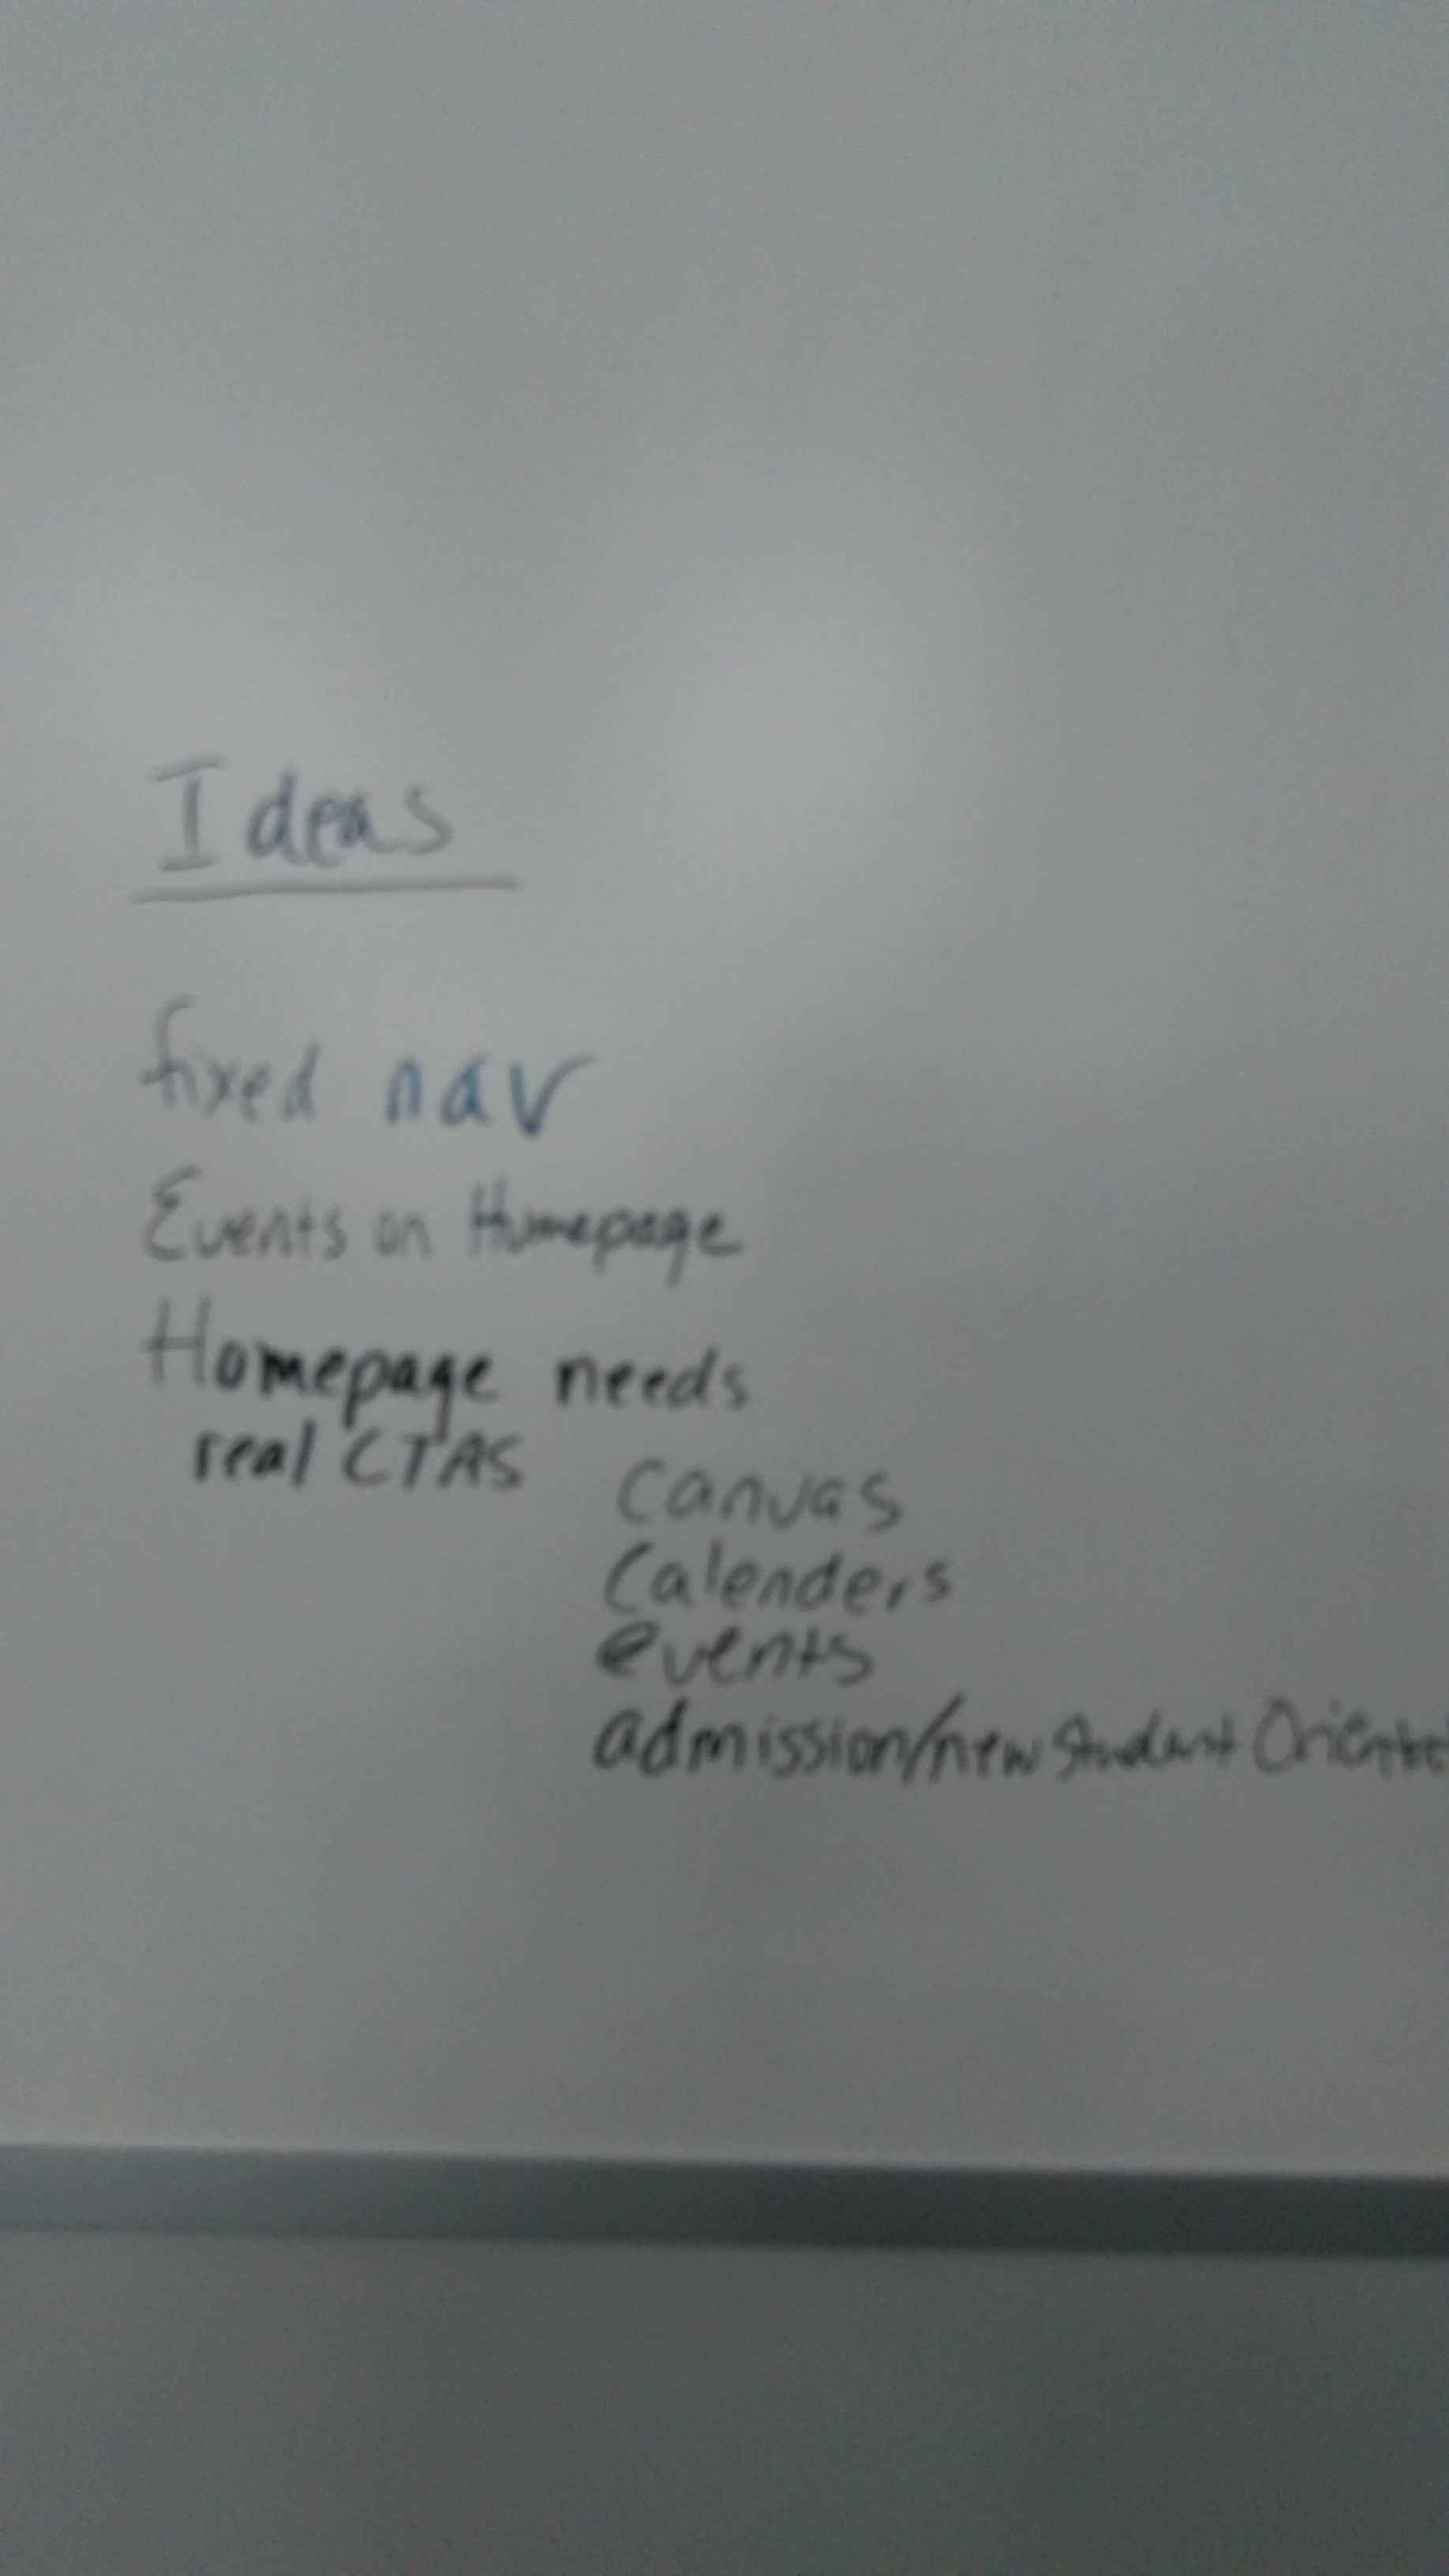 Ideas
fixed nav
Events on Homepage
Homepage needs
real CTAS
Canvas
Calenders
events
admission/new Student Oriental